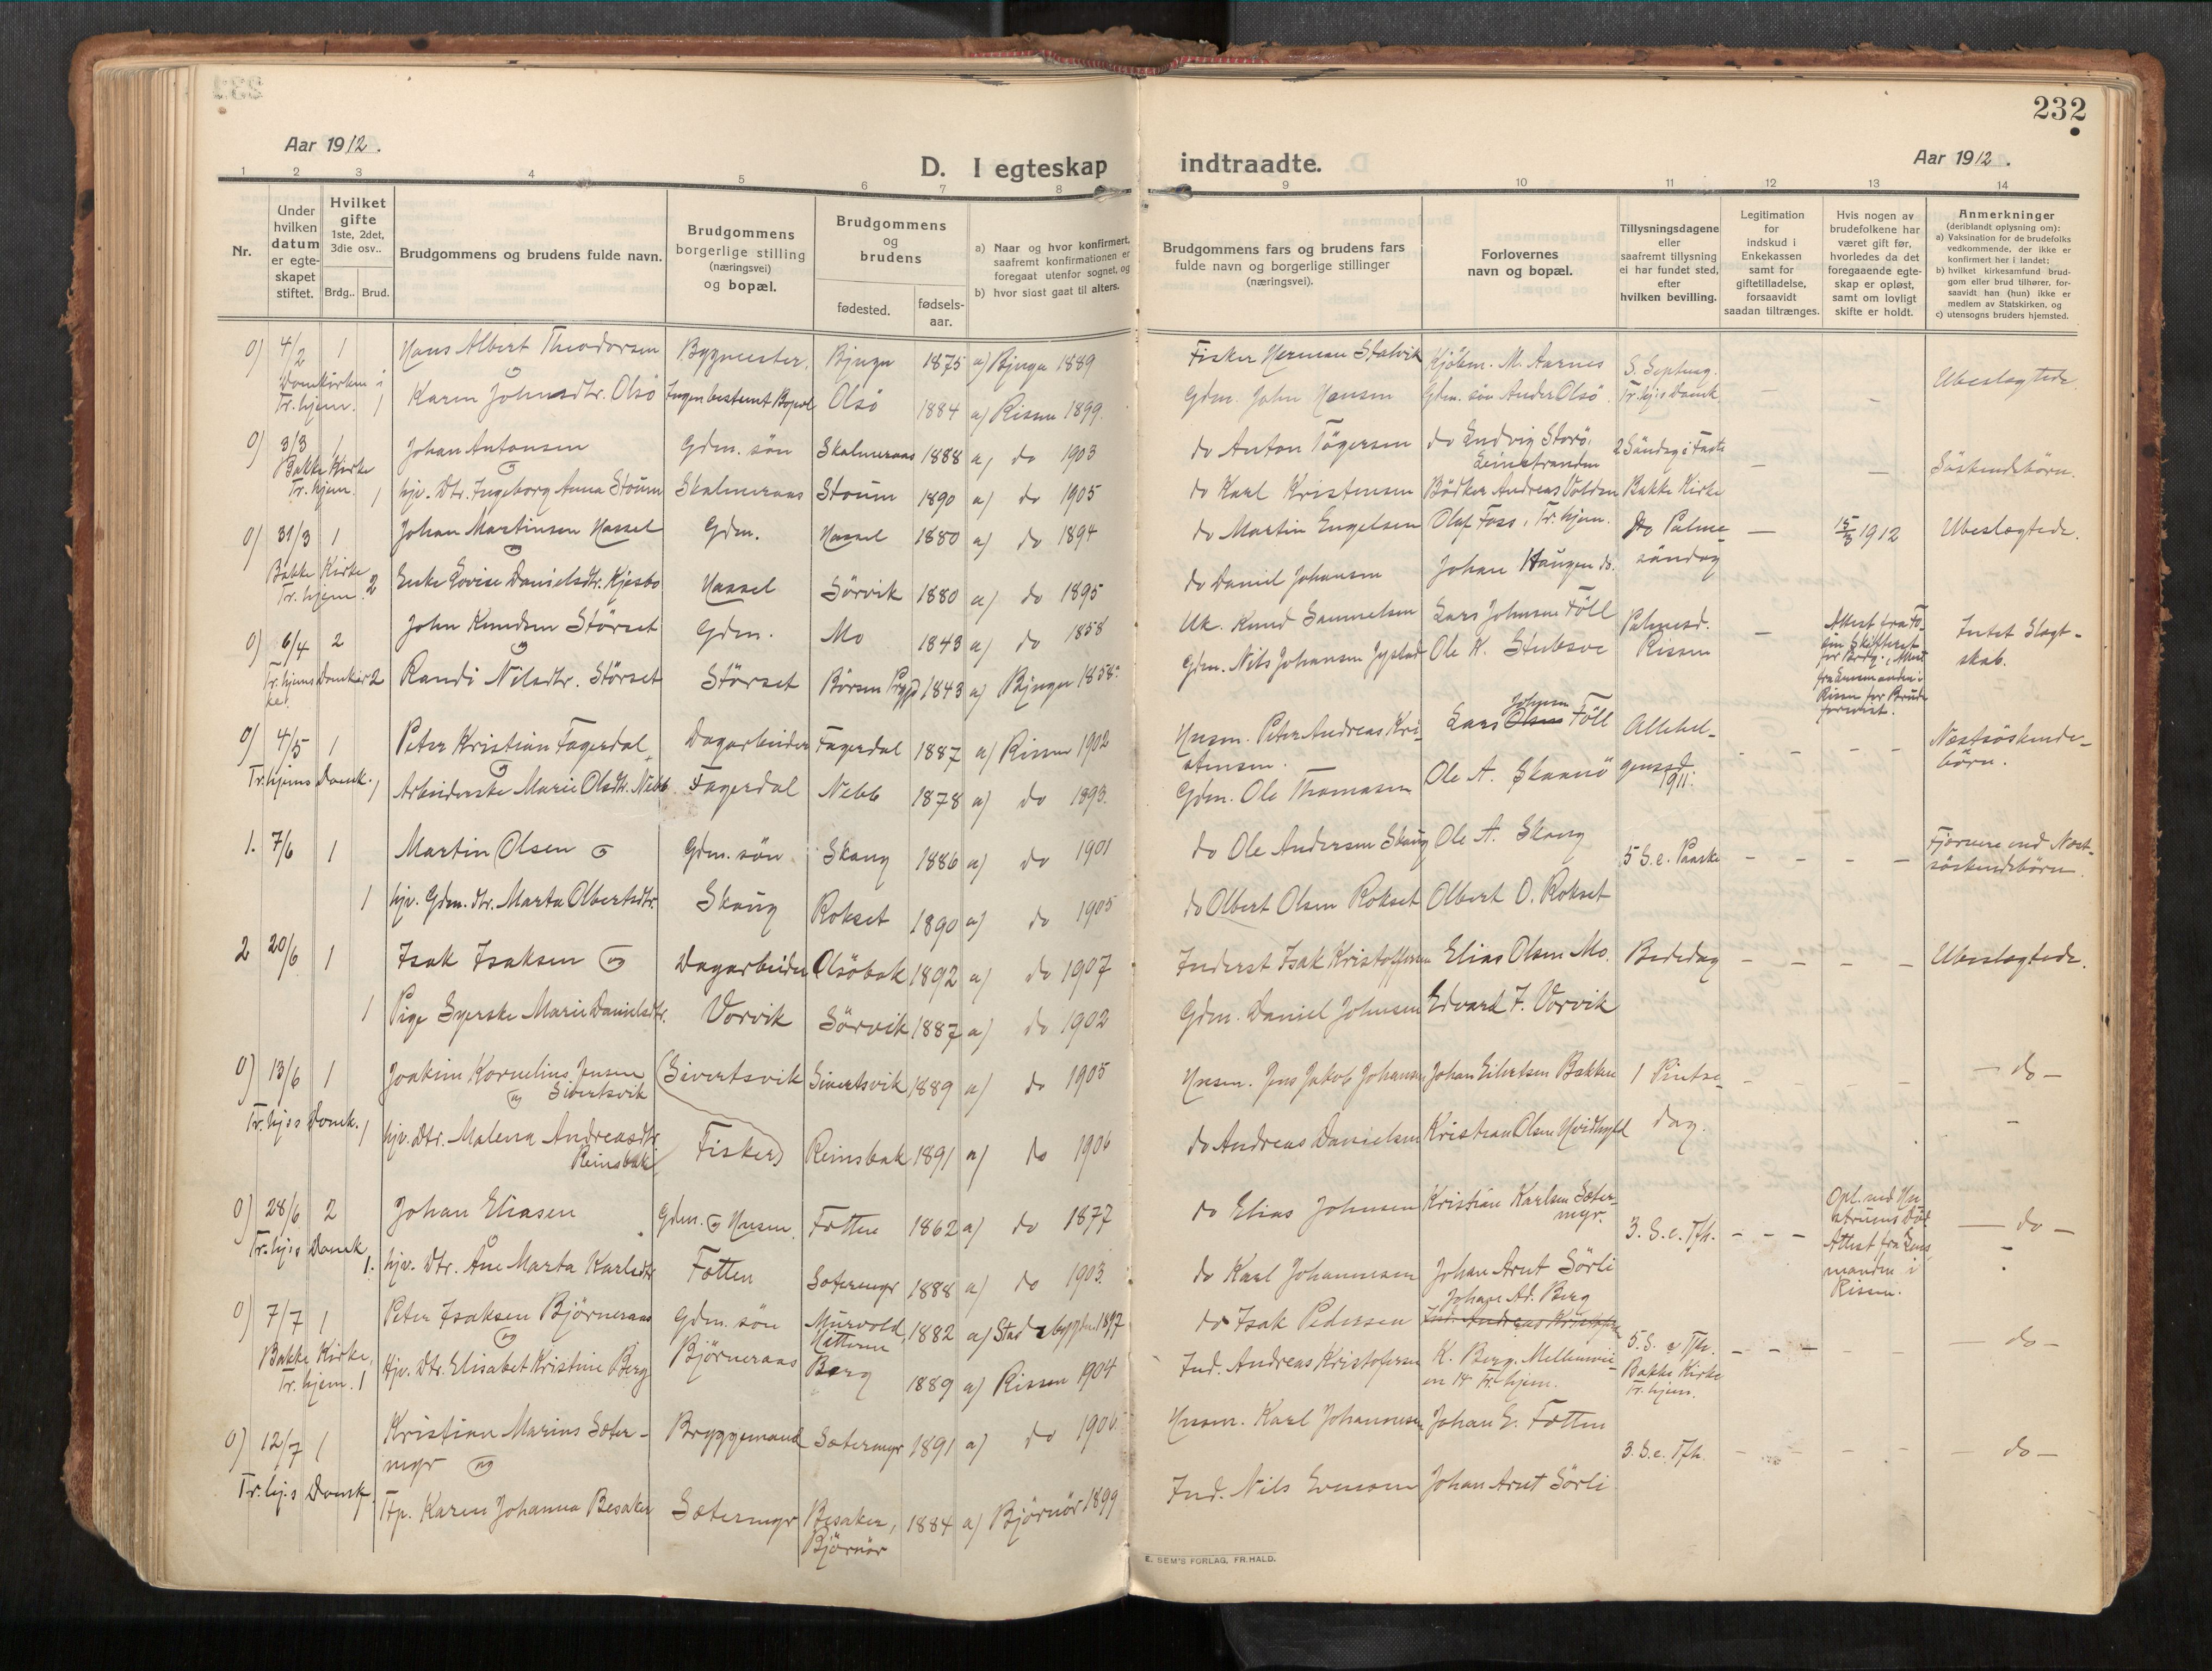 232
Aar 1912.
D. I egteskap indtraadte.
Aar 1912.
1 2 3 4 5 6 7 8 9 10 11 12 13 14
Nr.
Under hvilken datum er egte-skapet stiftet.
Hvilket gifte 1ste, 2det, 3die osv..
Brdg.. Brud.
Brudgommens og brudens fulde navn.
Brudgommens borgerlige stilling (næringsvei) og bopæl.
Brudgommens og brudens
fødested.
fødsels-aar.
a) Naar og hvor konfirmert, saafremt konfirmationen er foregaat utenfor sognet, og
b) hvor sidst gaat til alters.
Brudgommens fars og brudens fars fulde navn og borgerlige stillinger (næringsvei).
Forlovernes navn og bopæl.
Tillysningsdagene eller saafremt tillysning ei har fundet sted, efter hvilken bevilling.
Legitimation for indskud i Enkekassen samt for giftetilladelse, forsaavidt saadan tiltrænges.
Hvis nogen av brudefolkene har været gift før, hvorledes da det foregaaende egte-skap er opløst, samt om lovligt skifte er holdt.
Anmerkninger (deriblandt oplysning om):
a) Vaksination for de brudefolks vedkommende, der ikke er konfirmert her i landet;
b) hvilket kirkesamfund brud-gom eller brud tilhører, for-saavidt han (hun) ikke er medlem av Statskirken, og
c) utensogns bruders hjemsted.
0) 4/2 1 Hans Albert Theodorsen Bygmester Bjugn 1875 a) Bjugn 1889 Fisker Herman Stalvik Kjöbm. M. Aarnes S. Septuag.
Domkirken i Tr.hjem. 1 Karen Johnsdtr. Olsö Ingen bestemt Bopæl Olsö 1884 a) Rissen 1899. Gdm. John Hansen Gdm. sön Ander Olsö Tr.hj:s Domk. — — Ubeslægtede.
0) 3/3 1 Johan Antonsen Gdm. sön Skalmeraas 1888 a) do 1903 do Anton Tögersen do Ludvig Storö, Leinstranden 2 Söndag i Faste
Bakke Kirke Tr.hjem. 1 hjv. Dtr. Ingeborg Anna Stoum Skalmeraas Stoum 1890 a) do 1905 do Karl Kristensen Bödker Andreas Volden Bakke Kirke — — Söskendebörn.
0) 31/3 1 Johan Martinsen Hassel Gdm. Hassel 1880 a) do 1894 do Martin Engelsen Olaf Foss, Tr.hjem. do Palme- — 15/3 1912 Ubeslægtede.
Bakke Kirke Tr.hjem. 2 Enke Lovise Danielsdtr. Kjesbo Hassel Sörvik 1880 a) do 1895 do Daniel Johansen Johan Haugen do. söndag
0) 6/4 2 John Knudsen Störset Gdm. Mo 1843 a) do 1858 Uk. Knud Samuelsen Lars Johnsen Föll Palmesd. — Attest fra Fo-
Tr.hjems Domkir- ke. 2 Randi Nilsdtr. Störset Störset Börsen Prgjd 1843 a) Bjugn 1858. Gdm. Nils Johansen Ole K. Stubsve Rissen Intet Slegt-skab.
for Brdg., Attest
fra Lensmanden i
Rissen for Bruden
forevist.
0) 4/5 1 Peter Kristian Fagerdal Dagarbeider Fagerdal 1887 a) Rissen 1902 Husm. Peter Andreas Kri-stensen. Lars Johnsen Föll Allehel- - - - - Næstsöskende-börn.
Tr.hjems Domk. 1 Arbeiderske Marie Olsdtr. Nebb Fagerdal Nebb 1878 a) do 1893. Gdm. Ole Thomasen Ole A. Skannö gensd. 1911.
1. 7/6 1 Martin Olsen og Gdm. sön Skaug 1886 a) do 1901 do Ole Andersen Skaug Ole A. Skaug 5 S. e. Paaske - - - - Fjernere end Næst-söskendebörn.
1 hjv. Gdm. dtr. Marta Olbertsdtr. Skaug Rokset 1890 a) do 1905 do Olbert Olsen Rokset Olbert O. Rokset
2 20/6 1 Isak Isaksen og Dagarbeider Olsöbak 1892 a) do 1907 Inderst Isak Kristoffersen Elias Olsen Mo. Bededag - - - - Ubeslægtede.
1 Pige Syerske Marie Danielsdtr. Vorvik Sörvik 1887 a) do 1902 Gdm. Daniel Johnsen Edvard F. Vorvik
0) 13/6 1 Joakim Kornelius Jensen Sivertsvik og Sivertsvik Sivertsvik 1889 a) do 1905 Husm. Jens Jakob Johansen Johan Eilertsen Bakken 1 Pintse- - - - - — do —
Tr.hj:s Domk. 1 hjv. dtr. Malena Andreasdtr. Reinsbak Fisker Reinsbak 1891 a) do 1906 do Andreas Danielsen Kristian Olsen Hvidbyld dag.
0) 28/6 2 Johan Eliasen Gdm. og Husm. Fætten 1862 a) do 1877 do Elias Johnsen Kristian Karlsen Sæter-myr. 3. S. e. Tfh. - - - — do —
Tr.hj:s Domk. 1. hjv. Dtr. Ane Marta Karlsdtr. Fætten Sætermyr 1888 a) do 1903. do Karl Johannesen Johan Arnt Sörli
Opl. ved Hu-
struens Död
Attest fra Lens
manden i
Rissen.
0) 7/7 1 Peter Isaksen Björneraas og Gdm. sön Murvold, Hitteren 1882 a) Stadsbygden 1897 do Isak Pedersen Johan Ad. Berg 5. S. e Tfh. - - - - — do —
Bakke Kirke, Tr.hjem. 1 Hjv. Dtr. Elisabet Kristine Berg Björneraas Berg 1889 a) Rissen 1904 Ind. Andreas Kristofersen K. Berg, Mellemvei-en 14 Tr.hjem. Bakke Kirke Tr.hjem.
0) 12/7 1 Kristian Marius Sæter-myr og Bryggemand Sætermyr 1891 a) do 1906 Husm. Karl Johannesen Johan E. Fætten 3. S. e. Tfh. - - - - — do —
Tr.hj:s Domk. 1 Tp. Karen Johanna Besaker Sætermyr Besaker, Björnör 1884 a) Björnör 1899 Ind. Nils Evensen Johan Arnt Sörli
E. SEM'S FORLAG, FR.HALD.